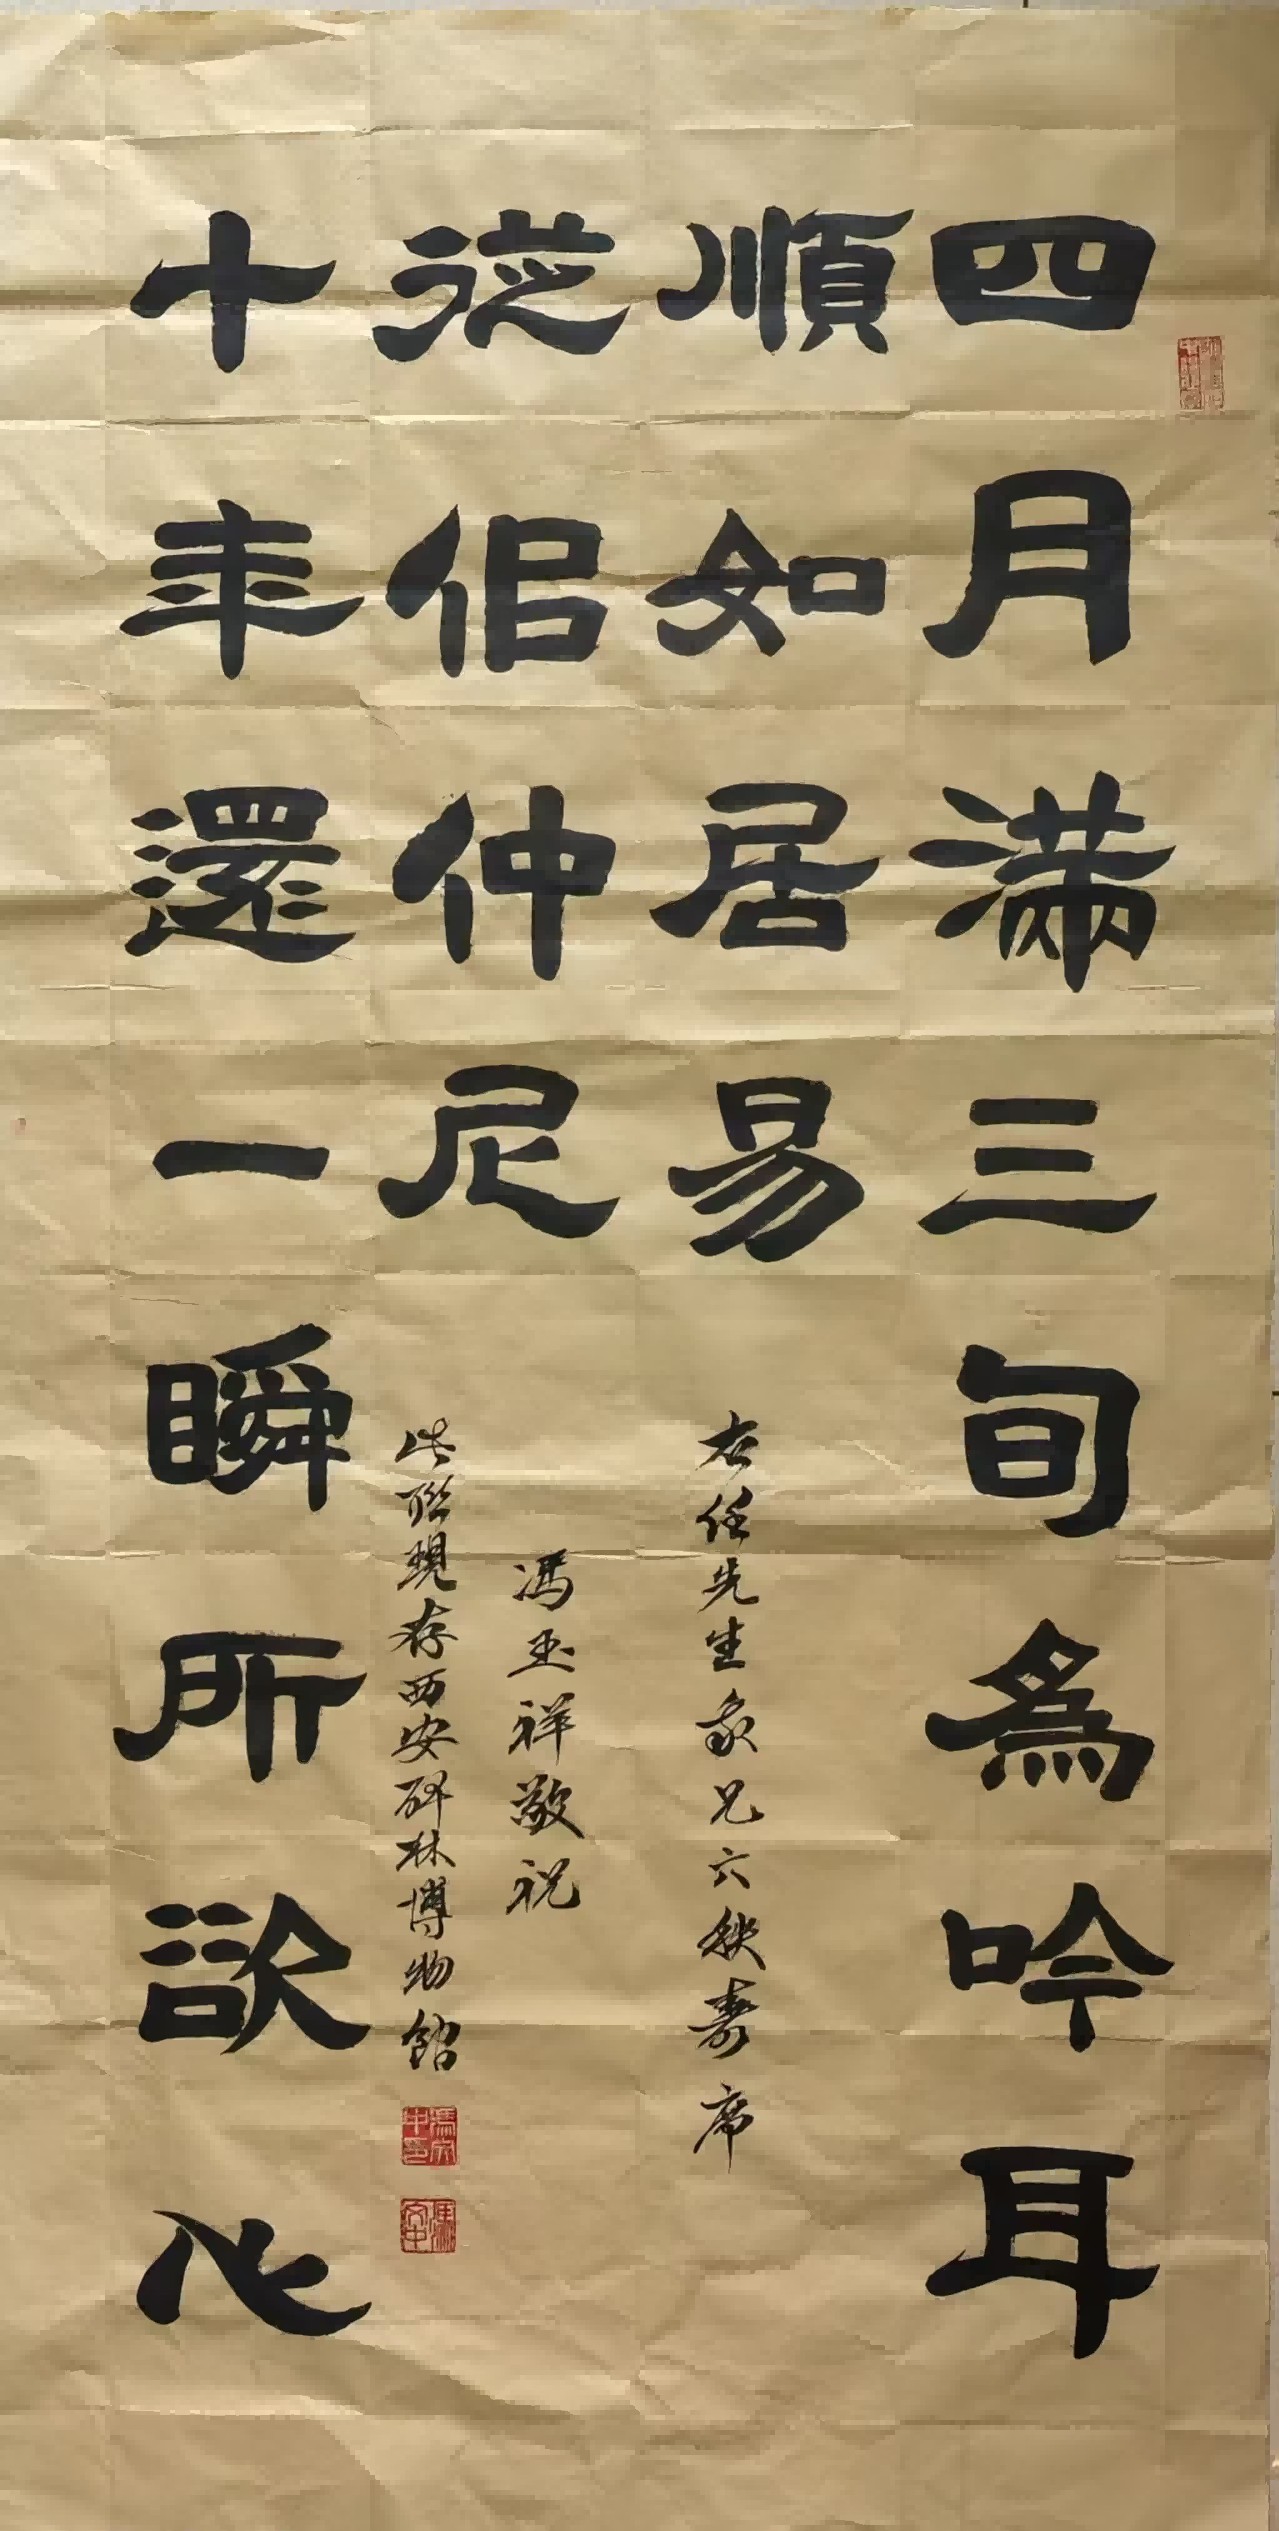 四月滿三旬為吟耳
順如居易
右任先生我兄六秩壽席
十年還一瞬所欲心
從侣仲尼
馮玉祥敬祝
此聯現存西安碑林博物館